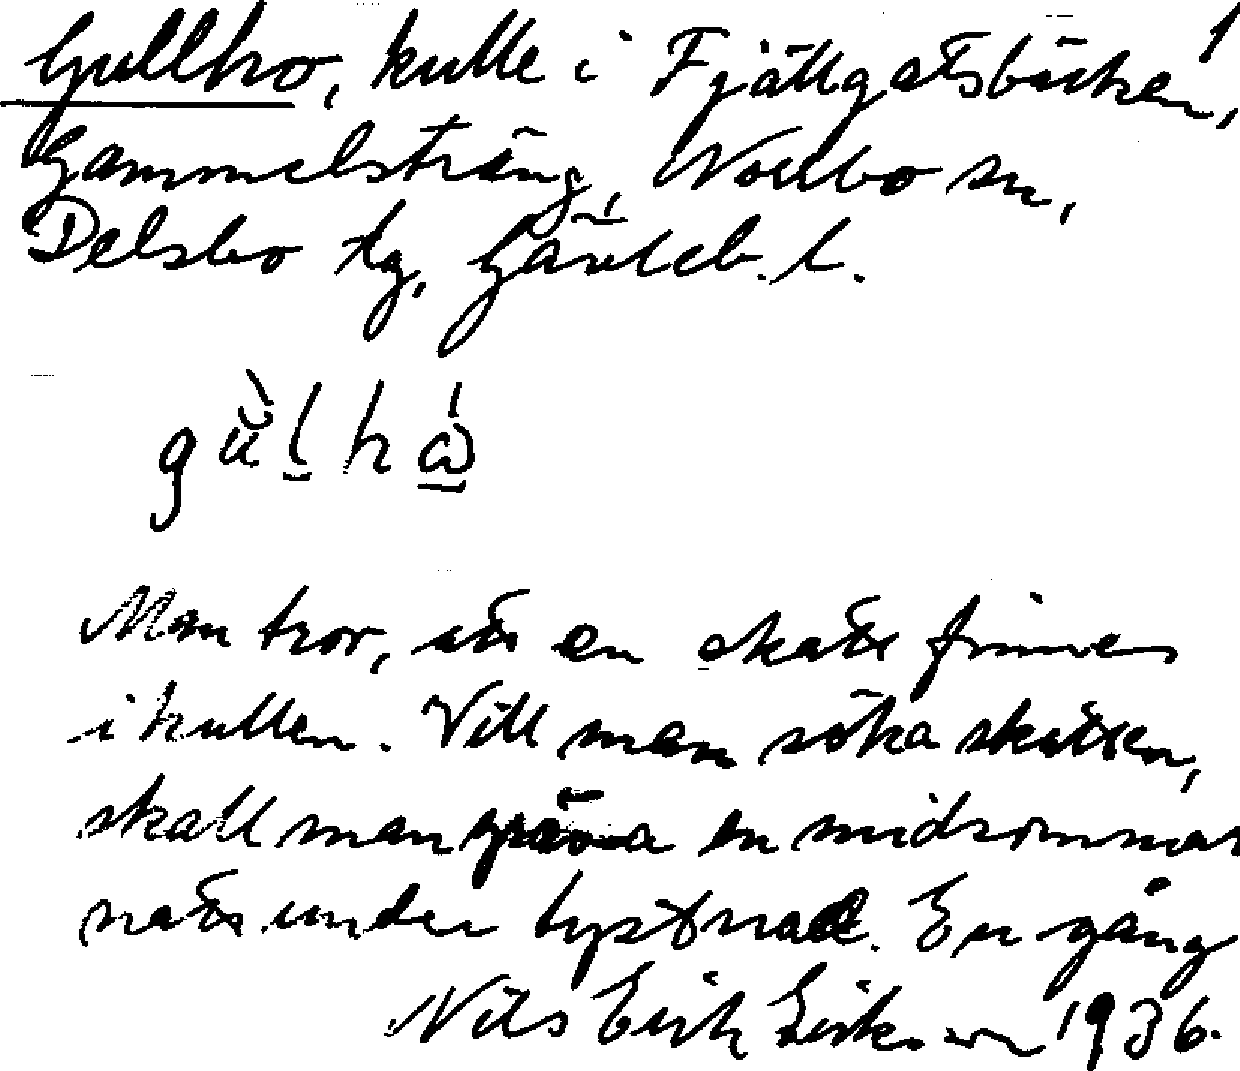 Gullho, kulle i Fjällgatsbäcken, 1
Gammelsträng, Norrbo sn,
Delsbo tg, Gävleb. l.
Man tror, att en skatt finnes
i kullen. Vill man söka skatten,
skall man gräva en midsommar
natt under tystnad. En gång
Nils Erik Eriksson 1936.